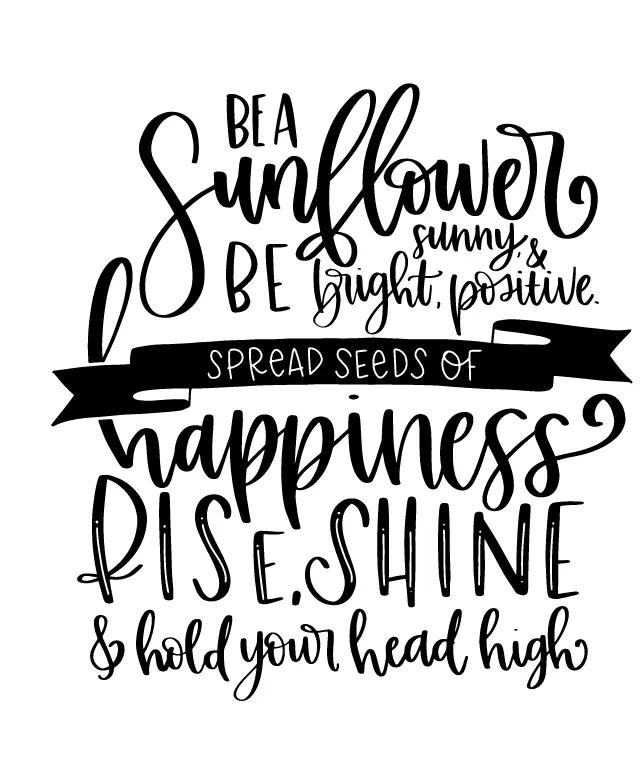 BE A
Sunflower
BE sunny,
bright, & positive.
SPREAD SEEDS OF
happiness
RISE, SHINE
& hold your head high